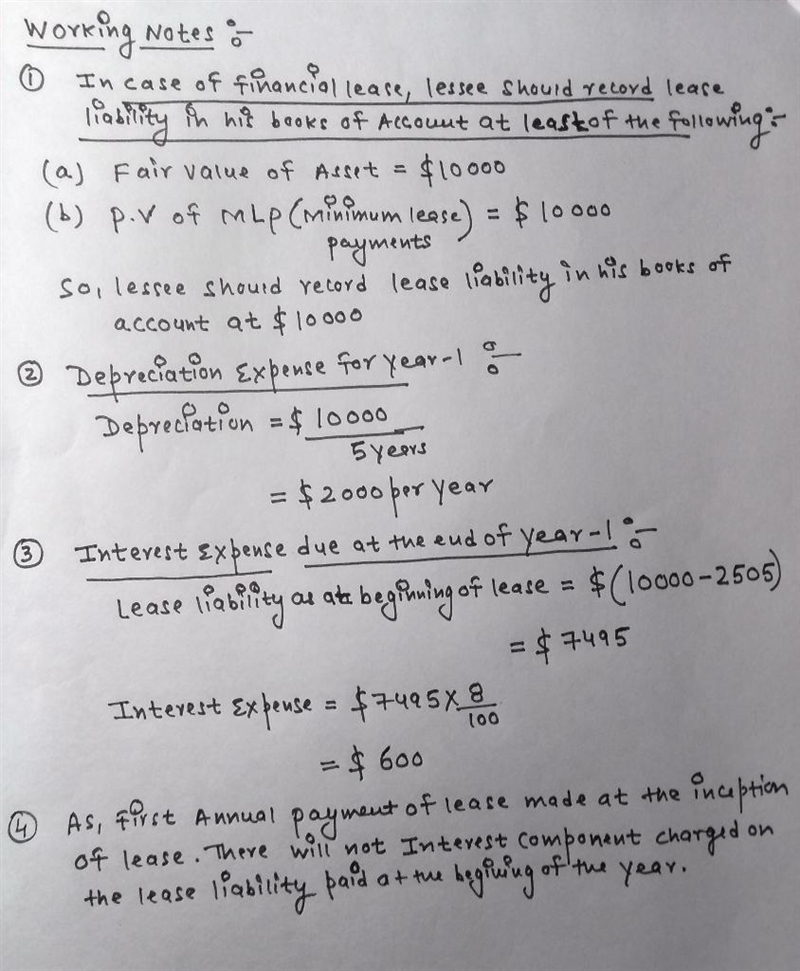 Working Notes :-
① In case of financial lease, lessee should record lease
liability in his books of Account at least of the following:-
(a) Fair value of Asset = $10000
(b) P.V of MLP (Minimum lease) = $ 10000
payments
So, lessee should record lease liability in his books of
account at $ 10000
② Depreciation Expense for year-1 :-
Depreciation = $ 10000
5 years
= $ 2000 per year
③ Interest Expense due at the end of year-1 :-
Lease liability as at beginning of lease = $(10000-2505)
= $ 7495
Interest Expense = $7495 X 8
100
= $ 600
④ As, first Annual payment of lease made at the inception
of lease. There will not Interest component charged on
the lease liability paid at the begining of the year.